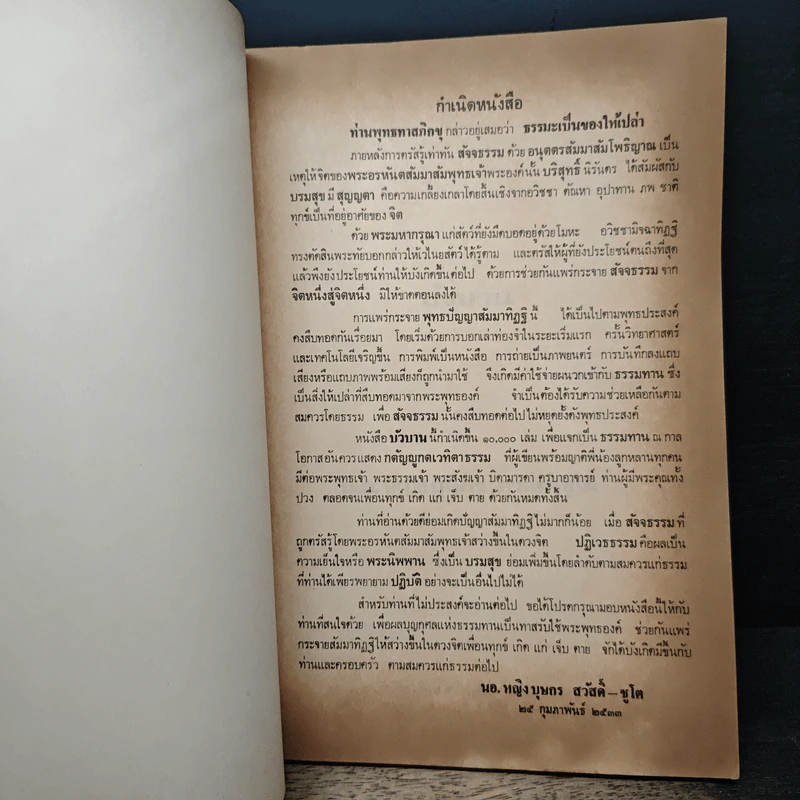 กำเนิดหนังสือ
ท่านพุทธทาสภิกขุ กล่าวอยู่เสมอว่า ธรรมะเป็นของให้เปล่า
ภายหลังการตรัสรู้เท่าทัน สัจจธรรม ด้วย อนุตตรสัมมาสัมโพธิญาณ เป็น
เหตุให้จิตของพระอรหันตสัมมาสัมพุทธเจ้าพระองค์นั้น บริสุทธิ์ นิรันดร ได้สัมผัสกับ
บรมสุข มี สุญญตา คือความเกลี้ยงเกลาโดยสิ้นเชิงจากอวิชชา ตัณหา อุปาทาน ภพ ชาติ
ทุกข์เป็นที่อยู่อาศัยของ จิต
ด้วย พระมหากรุณา แก่สัตว์ที่ยังมืดบอดอยู่ด้วยโมหะ อวิชชามิจฉาทิฏฐิ
ทรงตัดสินพระทัยบอกกล่าวให้เวไนยสัตว์ได้รู้ตาม และตรัสให้ผู้ที่ยังประโยชน์ตนถึงที่สุด
แล้วพึงยังประโยชน์ท่านให้บังเกิดขึ้นต่อไป ด้วยการช่วยกันแพร่กระจาย สัจจธรรม จาก
จิตหนึ่งสู่จิตหนึ่ง มิให้ขาดตอนลงได้
การแพร่กระจาย พุทธปัญญาสัมมาทิฏฐิ นี้ ได้เป็นไปตามพุทธประสงค์
คงสืบทอดกันเรื่อยมา โดยเริ่มด้วยการบอกเล่าท่องจำในระยะเริ่มแรก ครั้นวิทยาศาสตร์
และเทคโนโลยีเจริญขึ้น การพิมพ์เป็นหนังสือ การถ่ายเป็นภาพยนตร์ การบันทึกลงแถบ
เสียงหรือแถบภาพพร้อมเสียงก็ถูกนำมาใช้ จึงเกิดมีค่าใช้จ่ายผนวกเข้ากับ ธรรมทาน ซึ่ง
เป็นสิ่งให้เปล่าที่สืบทอดมาจากพระพุทธองค์ จำเป็นต้องได้รับความช่วยเหลือกันตาม
สมควรโดยธรรม เพื่อ สัจจธรรม นั้นคงสืบทอดต่อไปไม่หยุดยั้งดังพุทธประสงค์
หนังสือ บัวบาน นี้กำเนิดขึ้น ๑๐,๐๐๐ เล่ม เพื่อแจกเป็น ธรรมทาน ณ กาล
โอกาสอันควรแสดง กตัญญูกตเวทิตาธรรม ที่ผู้เขียนพร้อมญาติพี่น้องลูกหลานทุกคน
มีต่อพระพุทธเจ้า พระธรรมเจ้า พระสังฆเจ้า บิดามารดา ครูบาอาจารย์ ท่านผู้มีพระคุณทั้ง
ปวง ตลอดจนเพื่อนทุกข์ เกิด แก่ เจ็บ ตาย ด้วยกันหมดทั้งสิ้น
ท่านที่อ่านด้วยดีย่อมเกิดปัญญาสัมมาทิฏฐิไม่มากก็น้อย เมื่อ สัจจธรรม ที่
ถูกตรัสรู้โดยพระอรหันตสัมมาสัมพุทธเจ้าสว่างขึ้นในดวงจิต ปฏิเวธธรรม คือผลเป็น
ความเย็นใจหรือ พระนิพพาน ซึ่งเป็น บรมสุข ย่อมเพิ่มขึ้นโดยลำดับตามสมควรแก่ธรรม
ที่ท่านได้เพียรพยายาม ปฏิบัติ อย่างจะเป็นอื่นไปไม่ได้
สำหรับท่านที่ไม่ประสงค์จะอ่านต่อไป ขอได้โปรดกรุณามอบหนังสือนี้ให้กับ
ท่านที่สนใจด้วย เพื่อผลบุญกุศลแห่งธรรมทานเป็นทาสรับใช้พระพุทธองค์ ช่วยกันแพร่
กระจายสัมมาทิฏฐิให้สว่างขึ้นในดวงจิตเพื่อนทุกข์ เกิด แก่ เจ็บ ตาย จักได้บังเกิดมีขึ้นกับ
ท่านและครอบครัว ตามสมควรแก่ธรรมต่อไป
นอ. หญิง บุษกร สวัสดิ์ – ชูโต
๒๕ กุมภาพันธ์ ๒๕๓๓